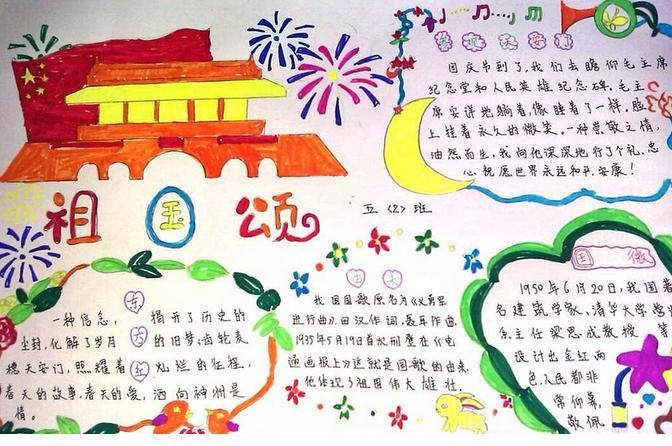 参观天安门
国庆节到了,我们去瞻仰毛主席
纪念堂和人民英雄纪念碑。毛主
席安详地躺着,像睡着了一样。脸
上挂着永久的微笑。一种崇敬之情,
油然而生,我向他深深地行了个礼,忠
心祝愿世界永远和平、安康!
祖国颂
五〈2〉班
东方红
一种信念,揭开了历史的
尘封,化解了岁月的旧梦;齿轮麦
穗天安门,照耀着灿烂的征程,
春天的故事,春天的爱,洒向神洲是
情。
由来
我国国歌原名为《义勇军
进行曲》,田汉作词,聂耳作曲,
1935年5月19日首次刊麾在《电
通画报上》,这就是国歌的由来。
他体现了祖国伟大雄壮。
国徽
1950年6月20日,我国著
名建筑学家、清华大学
系主任梁思成教授
设计出金红两
色,人民都非
常仰慕,
敬佩